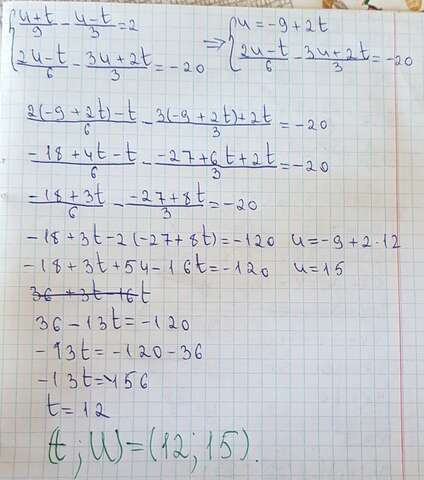 {(u+t)/9 - (u-t)/3 = 2 => {u = -9 + 2t
{(2u-t)/6 - (3u+2t)/3 = -20 {(2u-t)/6 - (3u+2t)/3 = -20
(2(-9+2t)-t)/6 - (3(-9+2t)+2t)/3 = -20
(-18+4t-t)/6 - (-27+6t+2t)/3 = -20
(-18+3t)/6 - (-27+8t)/3 = -20
-18+3t-2(-27+8t) = -120 u = -9+2·12
-18+3t+54-16t = -120 u = 15
36 +3t-16t
36-13t = -120
-13t = -120-36
-13t = -156
t = 12
(t; U) = (12; 15).